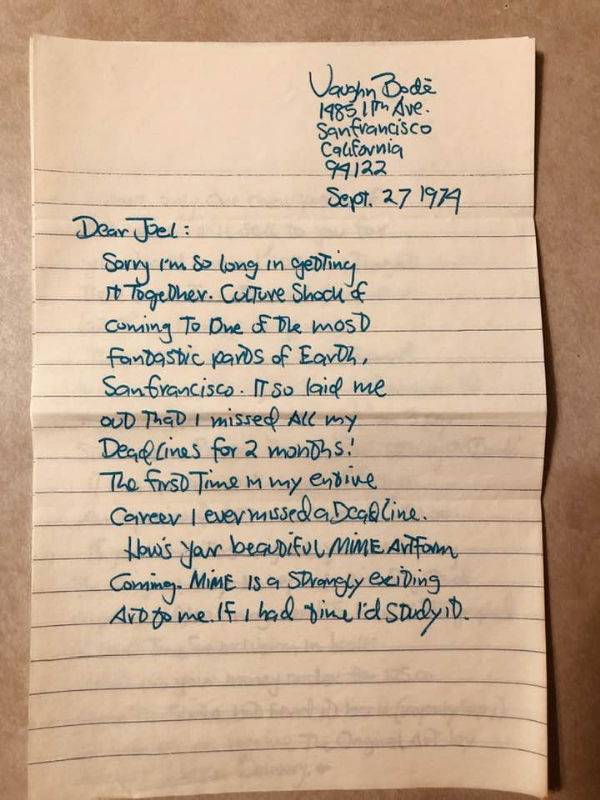 Vaughn Bodē
1485 11th Ave.
Sanfrancisco
California
94122
Sept. 27 1974
Dear Joel:
Sorry I'm so long in getting
it together. Culture Shock of
coming to one of the most
fantastic parts of Earth,
Sanfrancisco. It so laid me
out that I missed all my
Deadlines for 2 months!
The first time in my entire
Career I ever missed a Deadline.
How's your beautiful MIME Artform
Coming. MIME Is a Strongly exciting
Art to me. If I had time I'd study it.
The Original Art
Delivery.